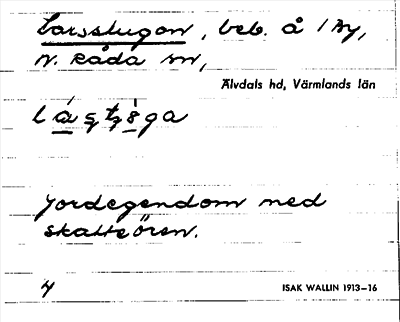 Larsstugan, beb. å 1 By,
N. Råda sn,
Älvdals hd, Värmlands län
Jordegendom med
skatteören.
4
ISAK WALLIN 1913–16